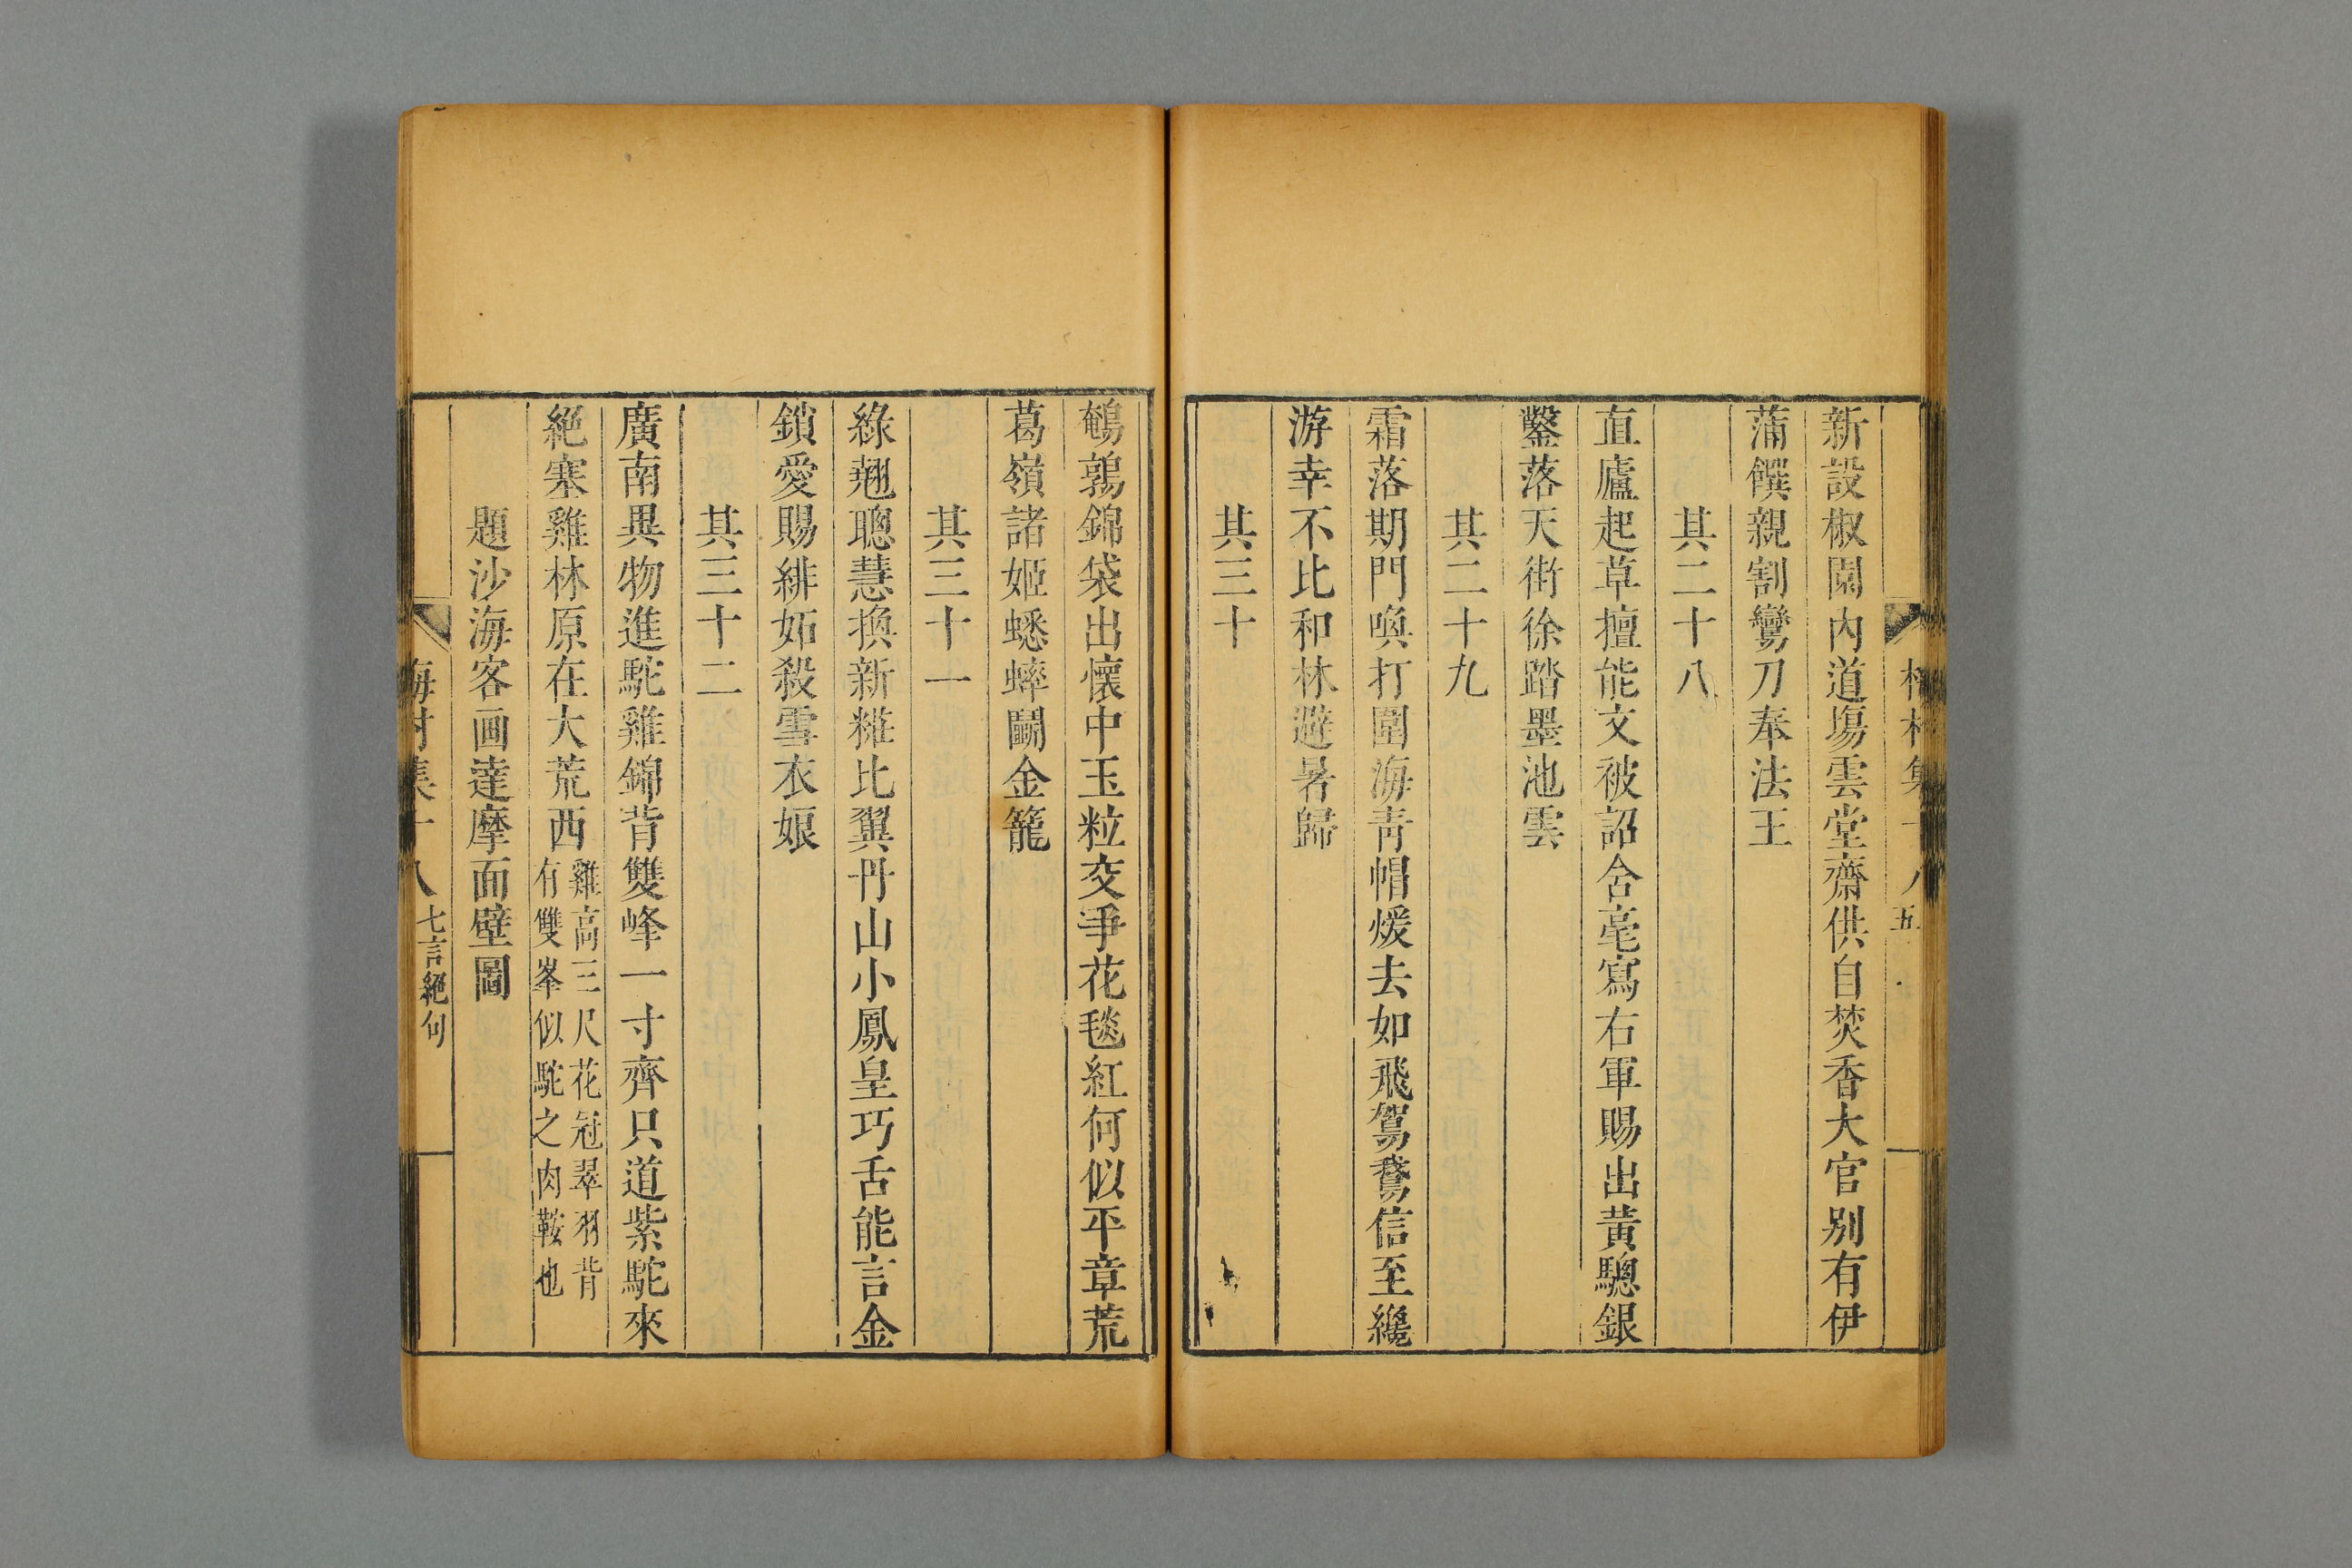 新設椒園內道場雲堂齋供自焚香大官别有伊
蒲饌親割鸞刀奉法王
其二十八
直廬起草擅能文被詔含毫寫右軍賜出黃驄銀
鑿落天街徐踏墨池雲
其二十九
霜落期門喚打圍海青帽煖去如飛鴐鵞信至纔
游幸不比和林避暑歸
其三十
鵪鶉錦袋出懷中玉粒交爭花毯紅何似平章荒
葛嶺諸姬蟋蟀鬬金籠
其三十一
綠翹聰慧換新糚比翼丹山小鳳皇巧舌能言金
鎖愛賜緋妬殺雪衣娘
其三十二
廣南異物進駝雞錦背雙峰一寸齊只道紫駝來
絕塞雞林原在大荒西雞高三尺花冠翠羽背
有雙峯似駝之肉鞍也
題沙海客画達摩面壁圖
梅村集十八
七言絕句
五